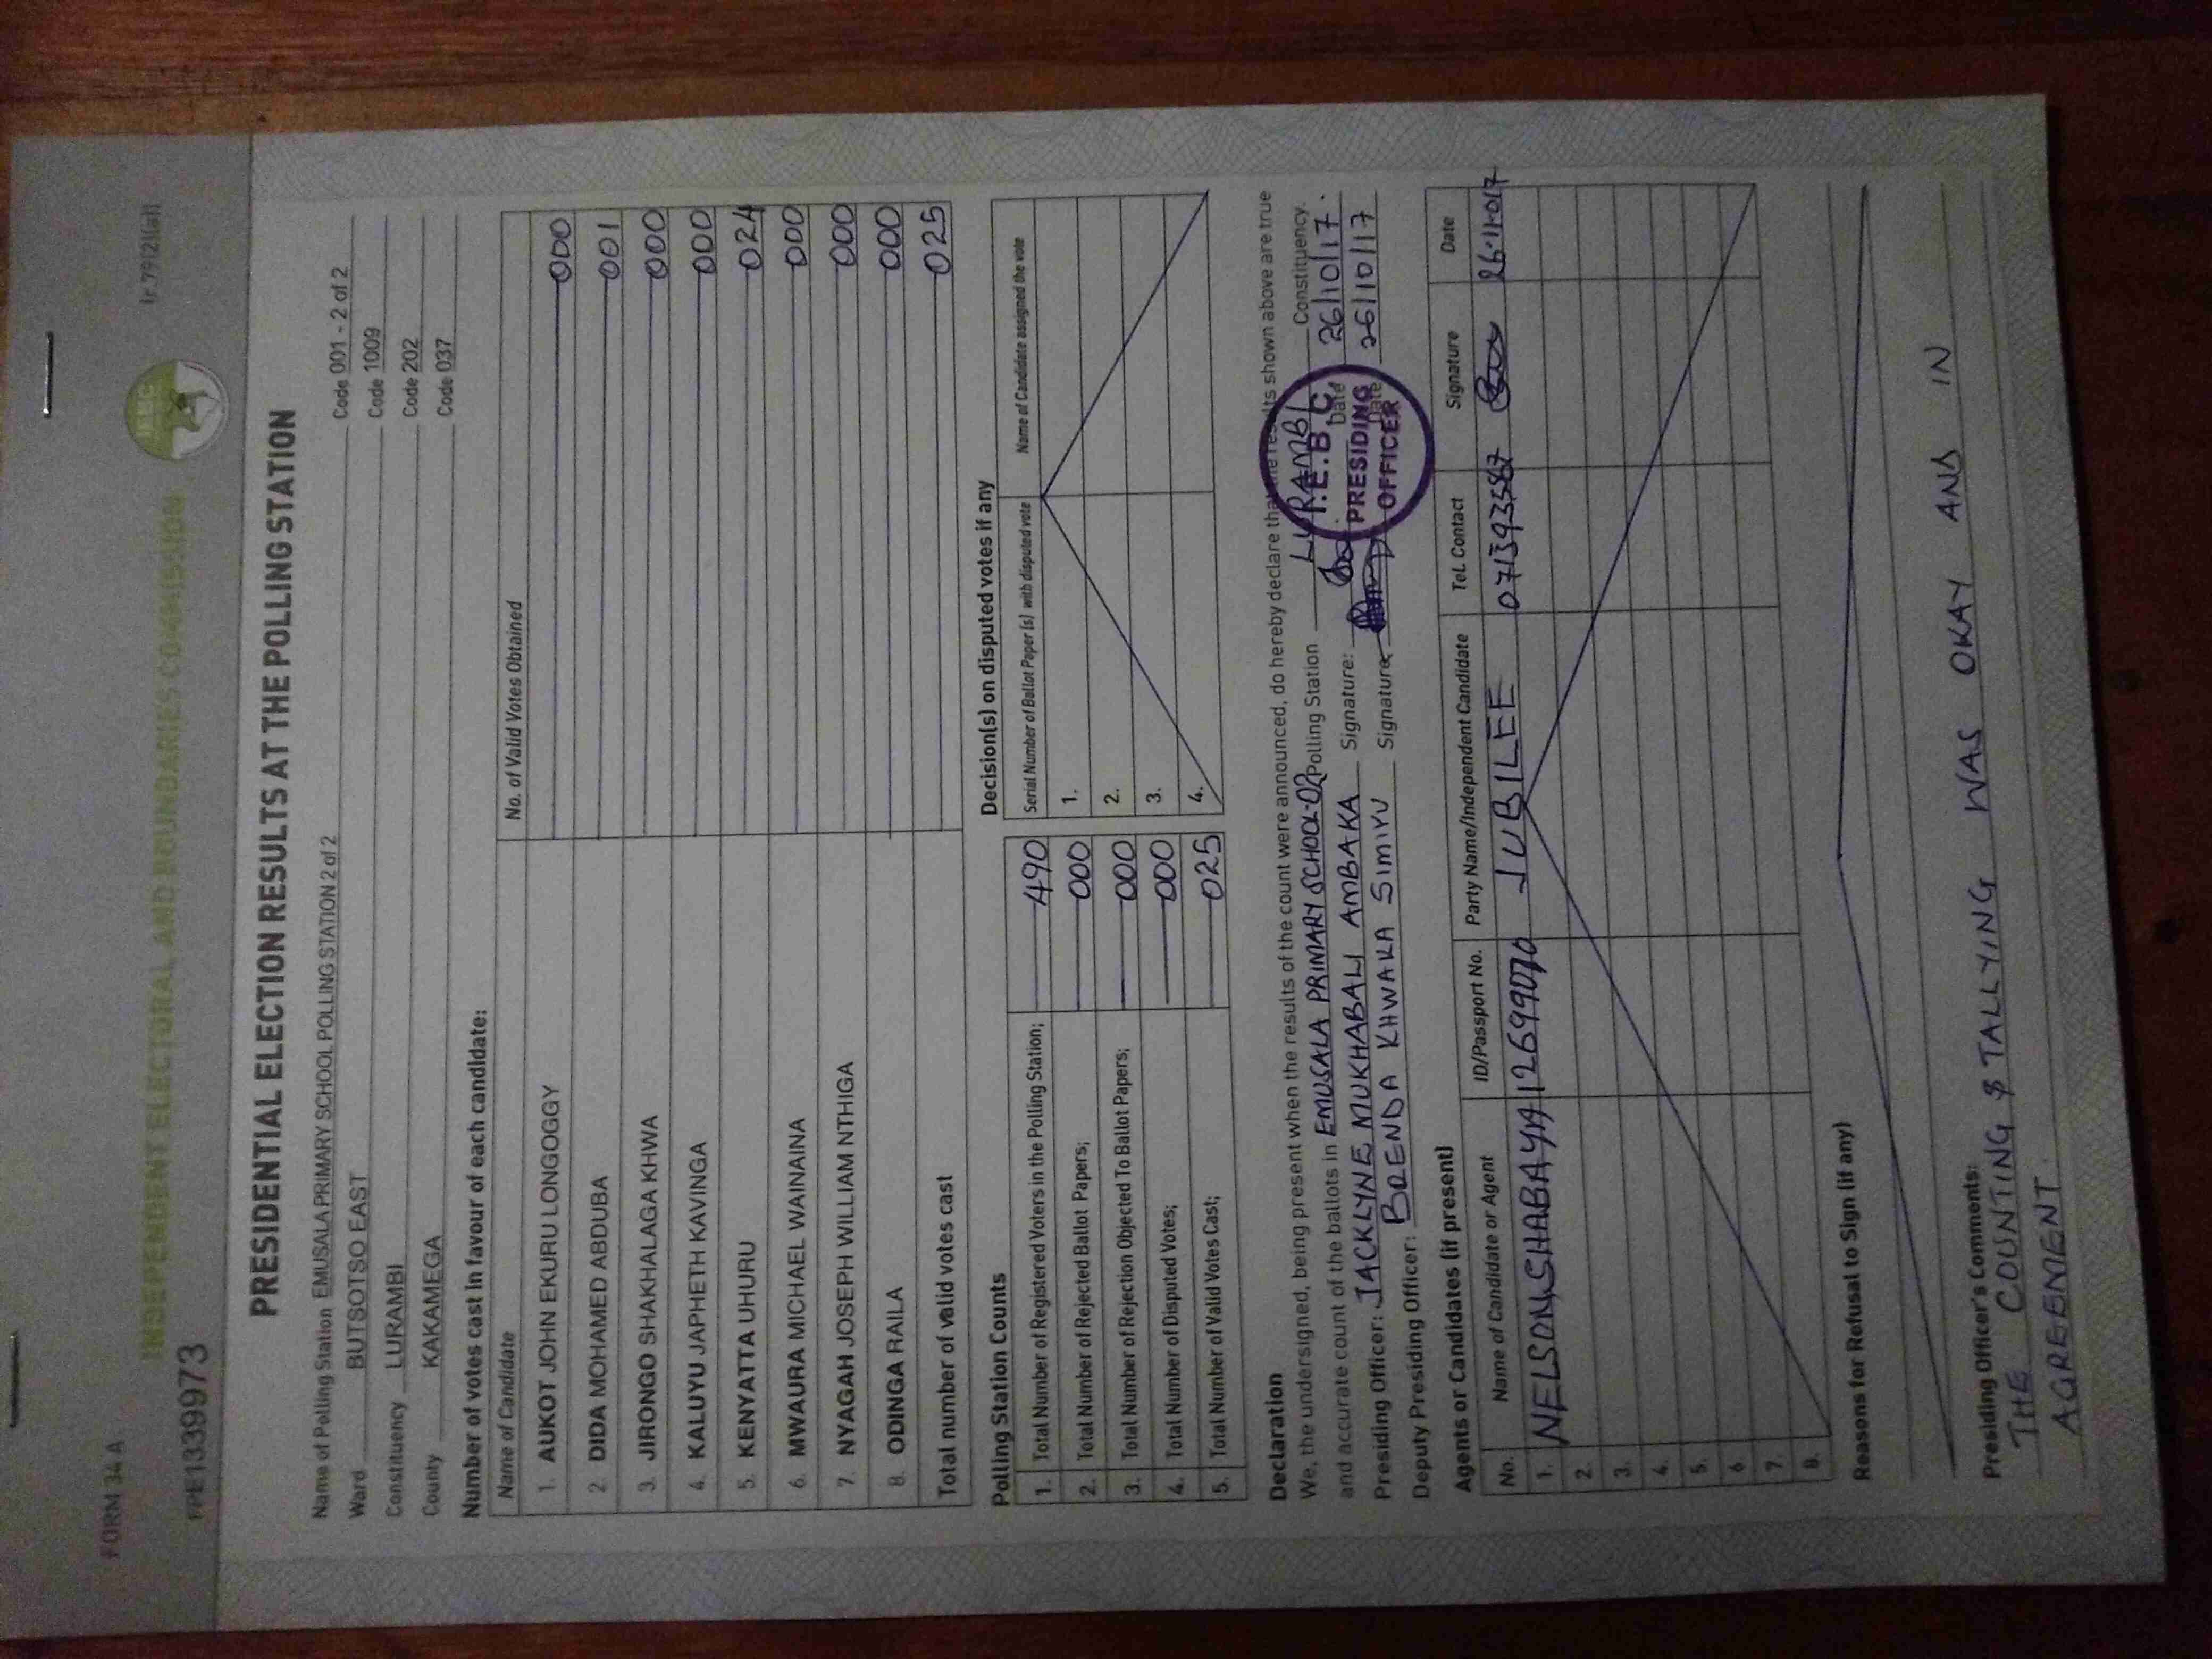 FORM 34A
INDEPENDENT ELECTORAL AND BOUNDARIES COMMISSION
IEBC
PRE1339973
PRESIDENTIAL ELECTION RESULTS AT THE POLLING STATION
Name of Polling Station EMUSALA PRIMARY SCHOOL POLLING STATION 2 of 2 Code 001 - 2 of 2
Ward BUTSOTSO EAST Code 1009
Constituency LURAMBI Code 202
County KAKAMEGA Code 037
Number of votes cast in favour of each candidate:
Name of Candidate No. of Valid Votes Obtained
1. AUKOT JOHN EKURU LONGOGGY 000
2. DIDA MOHAMED ABDUBA 001
3. JIRONGO SHAKHALAGA KHWA 000
4. KALUYU JAPHETH KAVINGA 000
5. KENYATTA UHURU 024
6. MWAURA MICHAEL WAINAINA 000
7. NYAGAH JOSEPH WILLIAM NTHIGA 000
8. ODINGA RAILA 000
Total number of valid votes cast 025
Polling Station Counts
1. Total Number of Registered Voters in the Polling Station; 490
2. Total Number of Rejected Ballot Papers; 000
3. Total Number of Rejection Objected To Ballot Papers; 000
4. Total Number of Disputed Votes; 000
5. Total Number of Valid Votes Cast; 025
Decision(s) on disputed votes if any
Serial Number of Ballot Paper (s) with disputed vote Name of Candidate assigned the vote
1.
2.
3.
4.
Declaration
We, the undersigned, being present when the results of the count were announced, do hereby declare that the results shown above are true
and accurate count of the ballots in EMUSALA PRIMARY SCHOOL-02 Polling Station LURAMBI Constituency.
Presiding Officer: JACKLYNE MUKHABALI AMBAKA Signature: Date 26/10/17.
Deputy Presiding Officer: BRENDA KHWAKA SIMIYU Signature Date 26/10/17
I.E.B.C
PRESIDING
OFFICER
Agents or Candidates (if present)
No. Name of Candidate or Agent ID/Passport No. Party Name/Independent Candidate Tel. Contact Signature Date
1. NELSON SHABAYA 12699070 JUBILEE
2.
3.
4.
5.
6
7.
8.
Reasons for Refusal to Sign (if any)
Presiding Officer's Comments:
THE COUNTING $ TALLYING WAS OKAY AND IN
AGREEMENT.